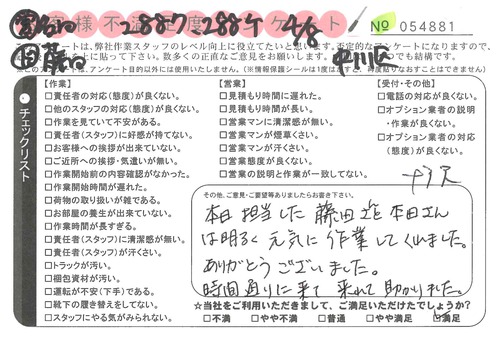 お客様不満足度アンケート
2887-2884 4/8
№ 054881
アンケートは、弊社作業スタッフのレベル向上に役立てたいと思います。否定的なアンケートになりますので、
に上に貼って下さい。数多くの正直なご意見をお願いします。
中川区
※この アンケート目的以外には使用いたしません。(※情報保護シールは1度はがすと、再度貼りなおすことはできません)
チェックリスト
【作業】
□責任者の対応(態度)が良くない。
□他のスタッフの対応(態度)が良くない。
□作業を見ていて不安がある。
□責任者(スタッフ)に好感が持てない。
□お客様への挨拶が出来ていない。
□ご近所への挨拶・気遣いが無い。
□作業開始前の内容確認がなかった。
□作業開始時間が遅れた。
□荷物の取り扱いが雑である。
□お部屋の養生が出来ていない。
□作業時間が長すぎる。
□責任者(スタッフ)に清潔感が無い。
□責任者(スタッフ)が汗くさい。
□トラックが汚い。
□梱包資材が汚い。
□運転が不安(下手)である。
□靴下の履き替えをしてない。
□スタッフにやる気がみられない。
【営業】
□見積もり時間に遅れた。
□見積もり時間が長い。
□営業マンに清潔感が無い。
□営業マンが煙草くさい。
□営業マンが汗くさい。
□営業態度が良くない。
□営業の説明と作業が一致してない。
【受付・その他】
□電話の対応が良くない。
□オプション業者の説明
・作業が良くない。
□オプション業者の対応
(態度)が良くない。
その他、ご意見・ご要望等ありましたらお書き下さい。
本日担当した藤田さんと本田さん
は明るく元気に作業してくれました。
ありがとうございました。
時間通りに来て来れて助かりました。
☆当社をご利用いただきまして、ご満足いただけたでしょうか?
□不満 □やや不満 □普通 □やや満足 □満足